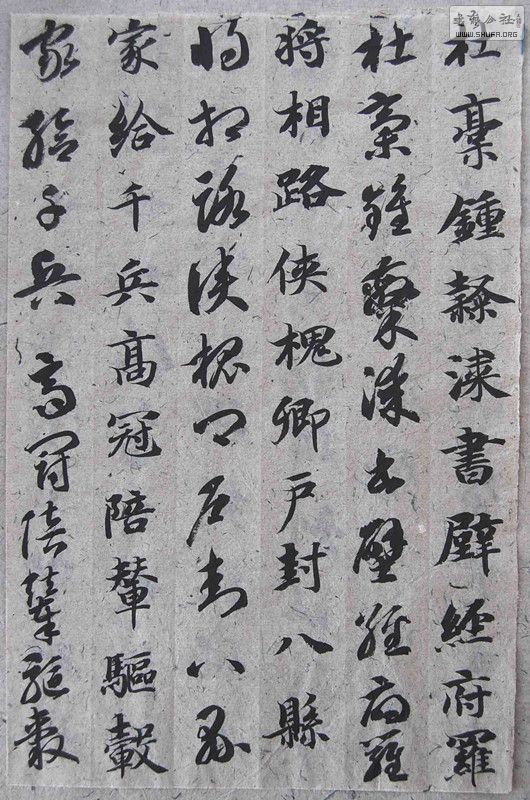 杜稾鍾隸漆書壁經府羅
杜稾鍾隸漆書壁經府羅
將相路俠槐卿戶封八縣
將相路俠槐卿戶封八縣
家給千兵高冠陪輦驅轂
家給千兵高冠陪輦驅轂
WWW.SHUFA.ORG